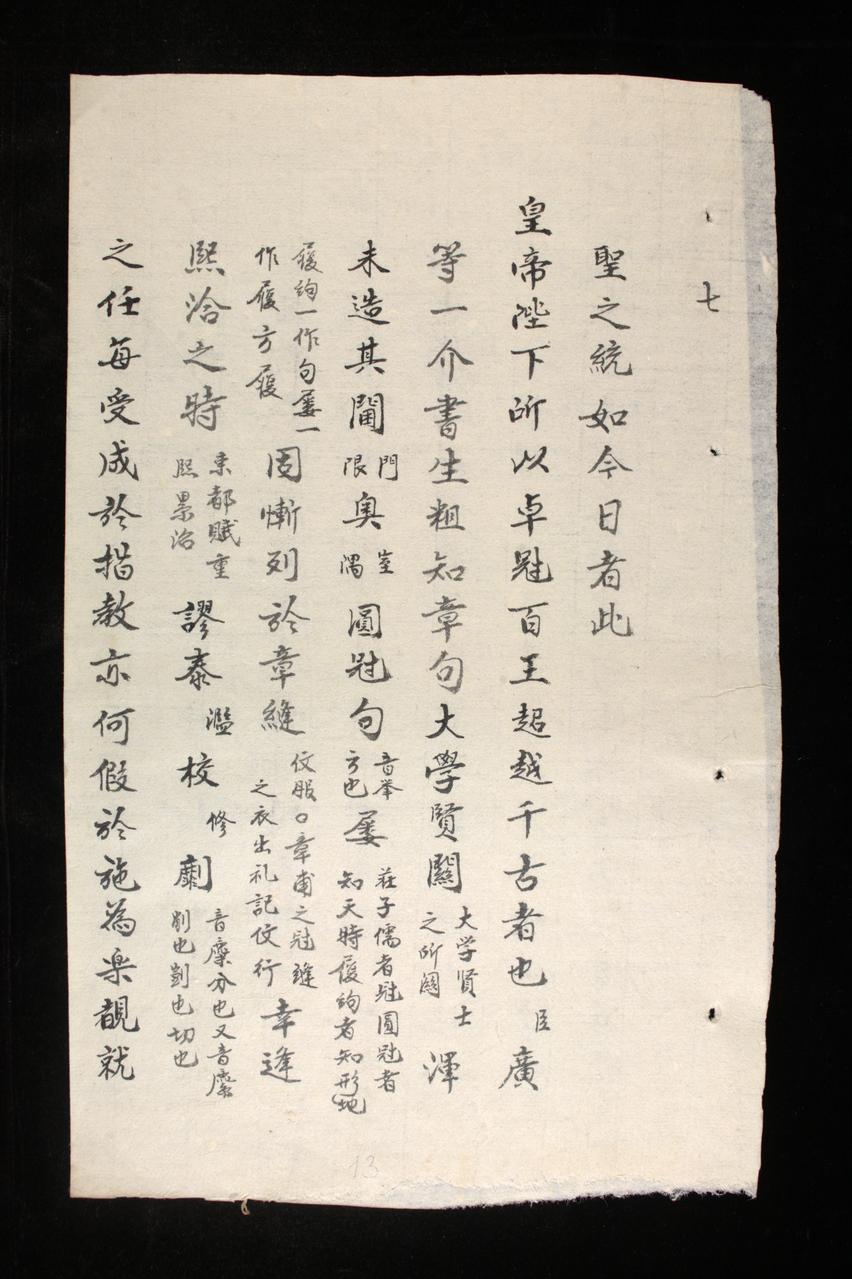 七
聖之統如今日者此
皇帝陛下所以卓冠百王超越千古者也臣廣
等一介書生粗知章句大學賢關大学賢士之所関渾
未造其閫門限奥室隅圓冠句音举方也屦荘子儒者冠圓冠者知天時履絇者知形地
履絇一作句屦一作履方履固慚列於章縫仗服口章甫之冠縫之衣出礼記仗行幸逢
熙洽之時東都賦重熙累洽謬忝濫校修劘音糜分也又音磨削也劃也切也
之任每受成於指教亦何假於施為楽覩就
13